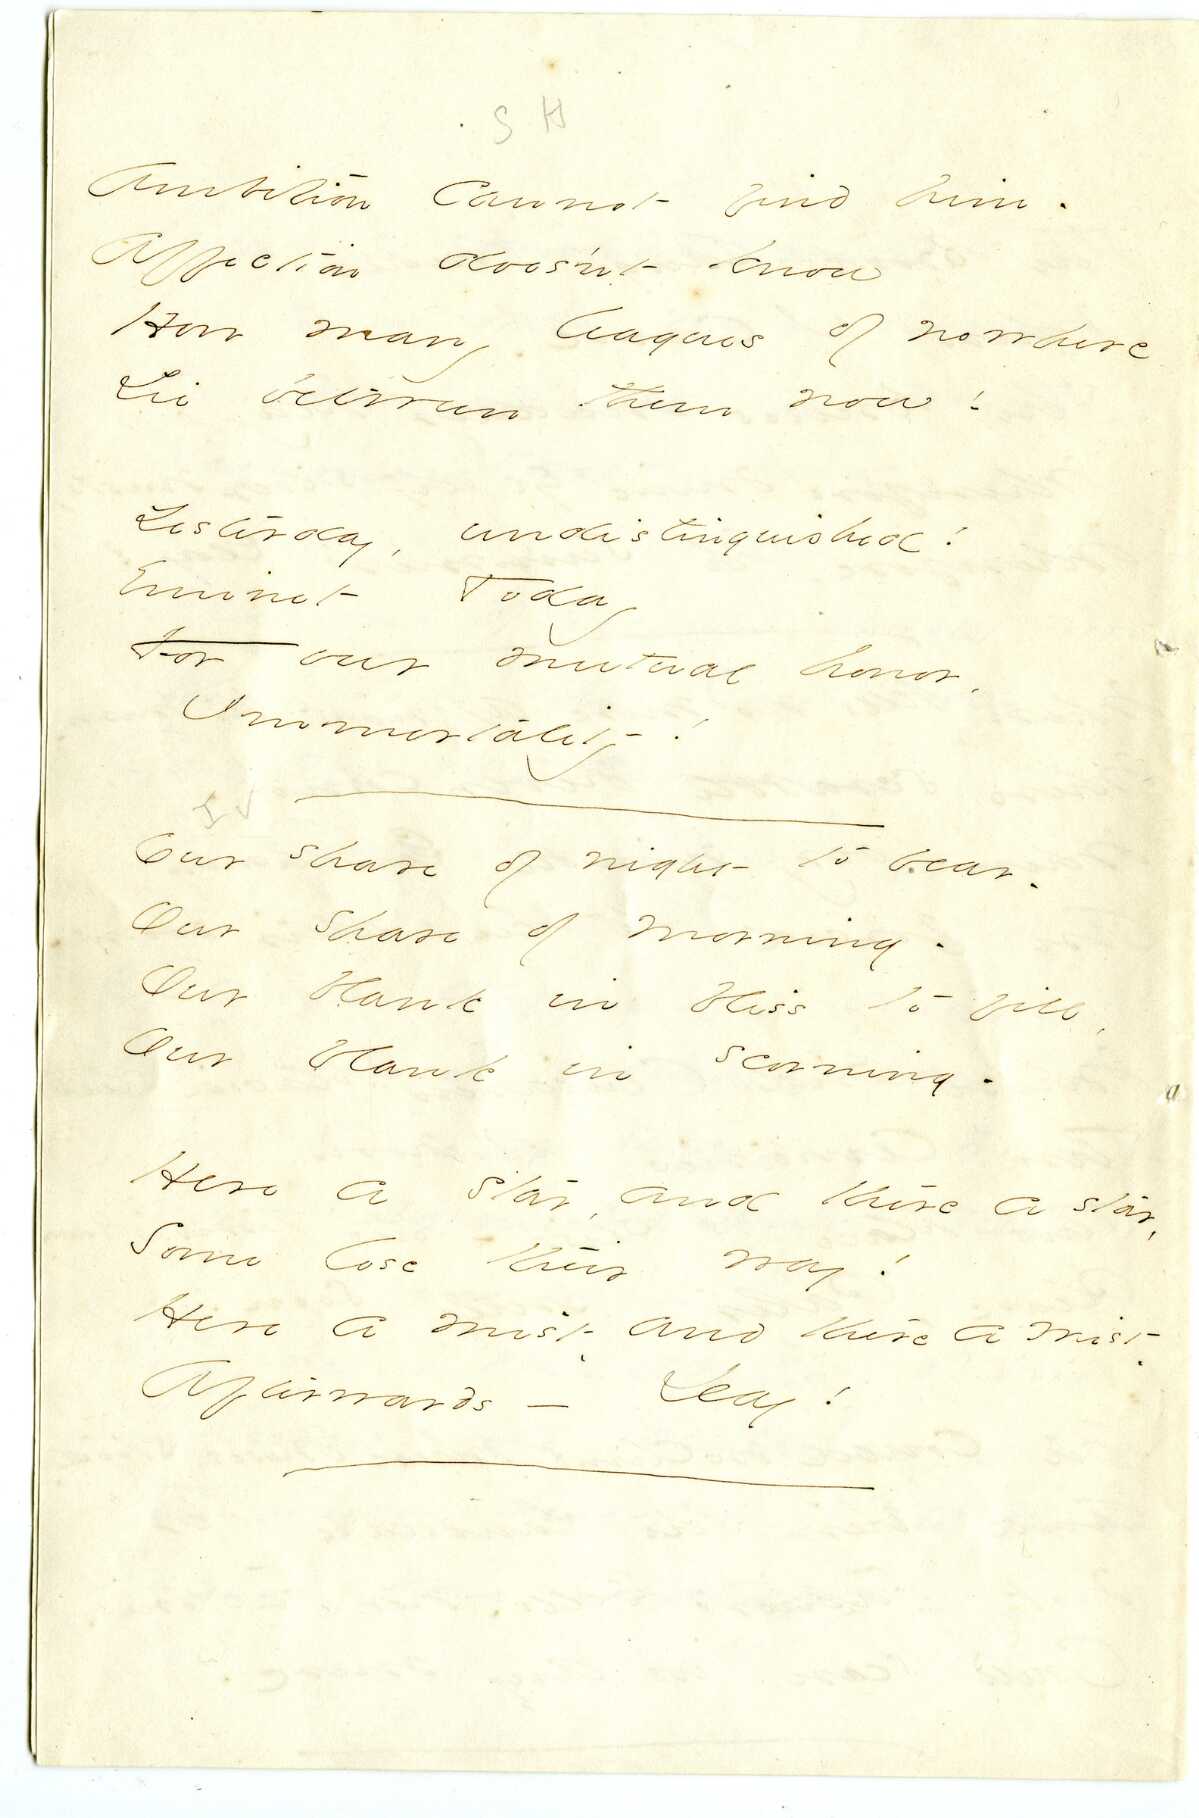 S H
Ambition cannot find him.
Affection doesn't know
How many leagues of nowhere
Lie between them now!
Yesterday, undistinguished!
Eminent Today
For our mutual honor,
Immortality!
Our share of night to bear.
Our share of morning.
Our blank in bliss to fill,
Our blank in scorning.
Here a star, and there a star,
Some lose their way!
Here a mist, and there a mist,
Afterwards — Day!